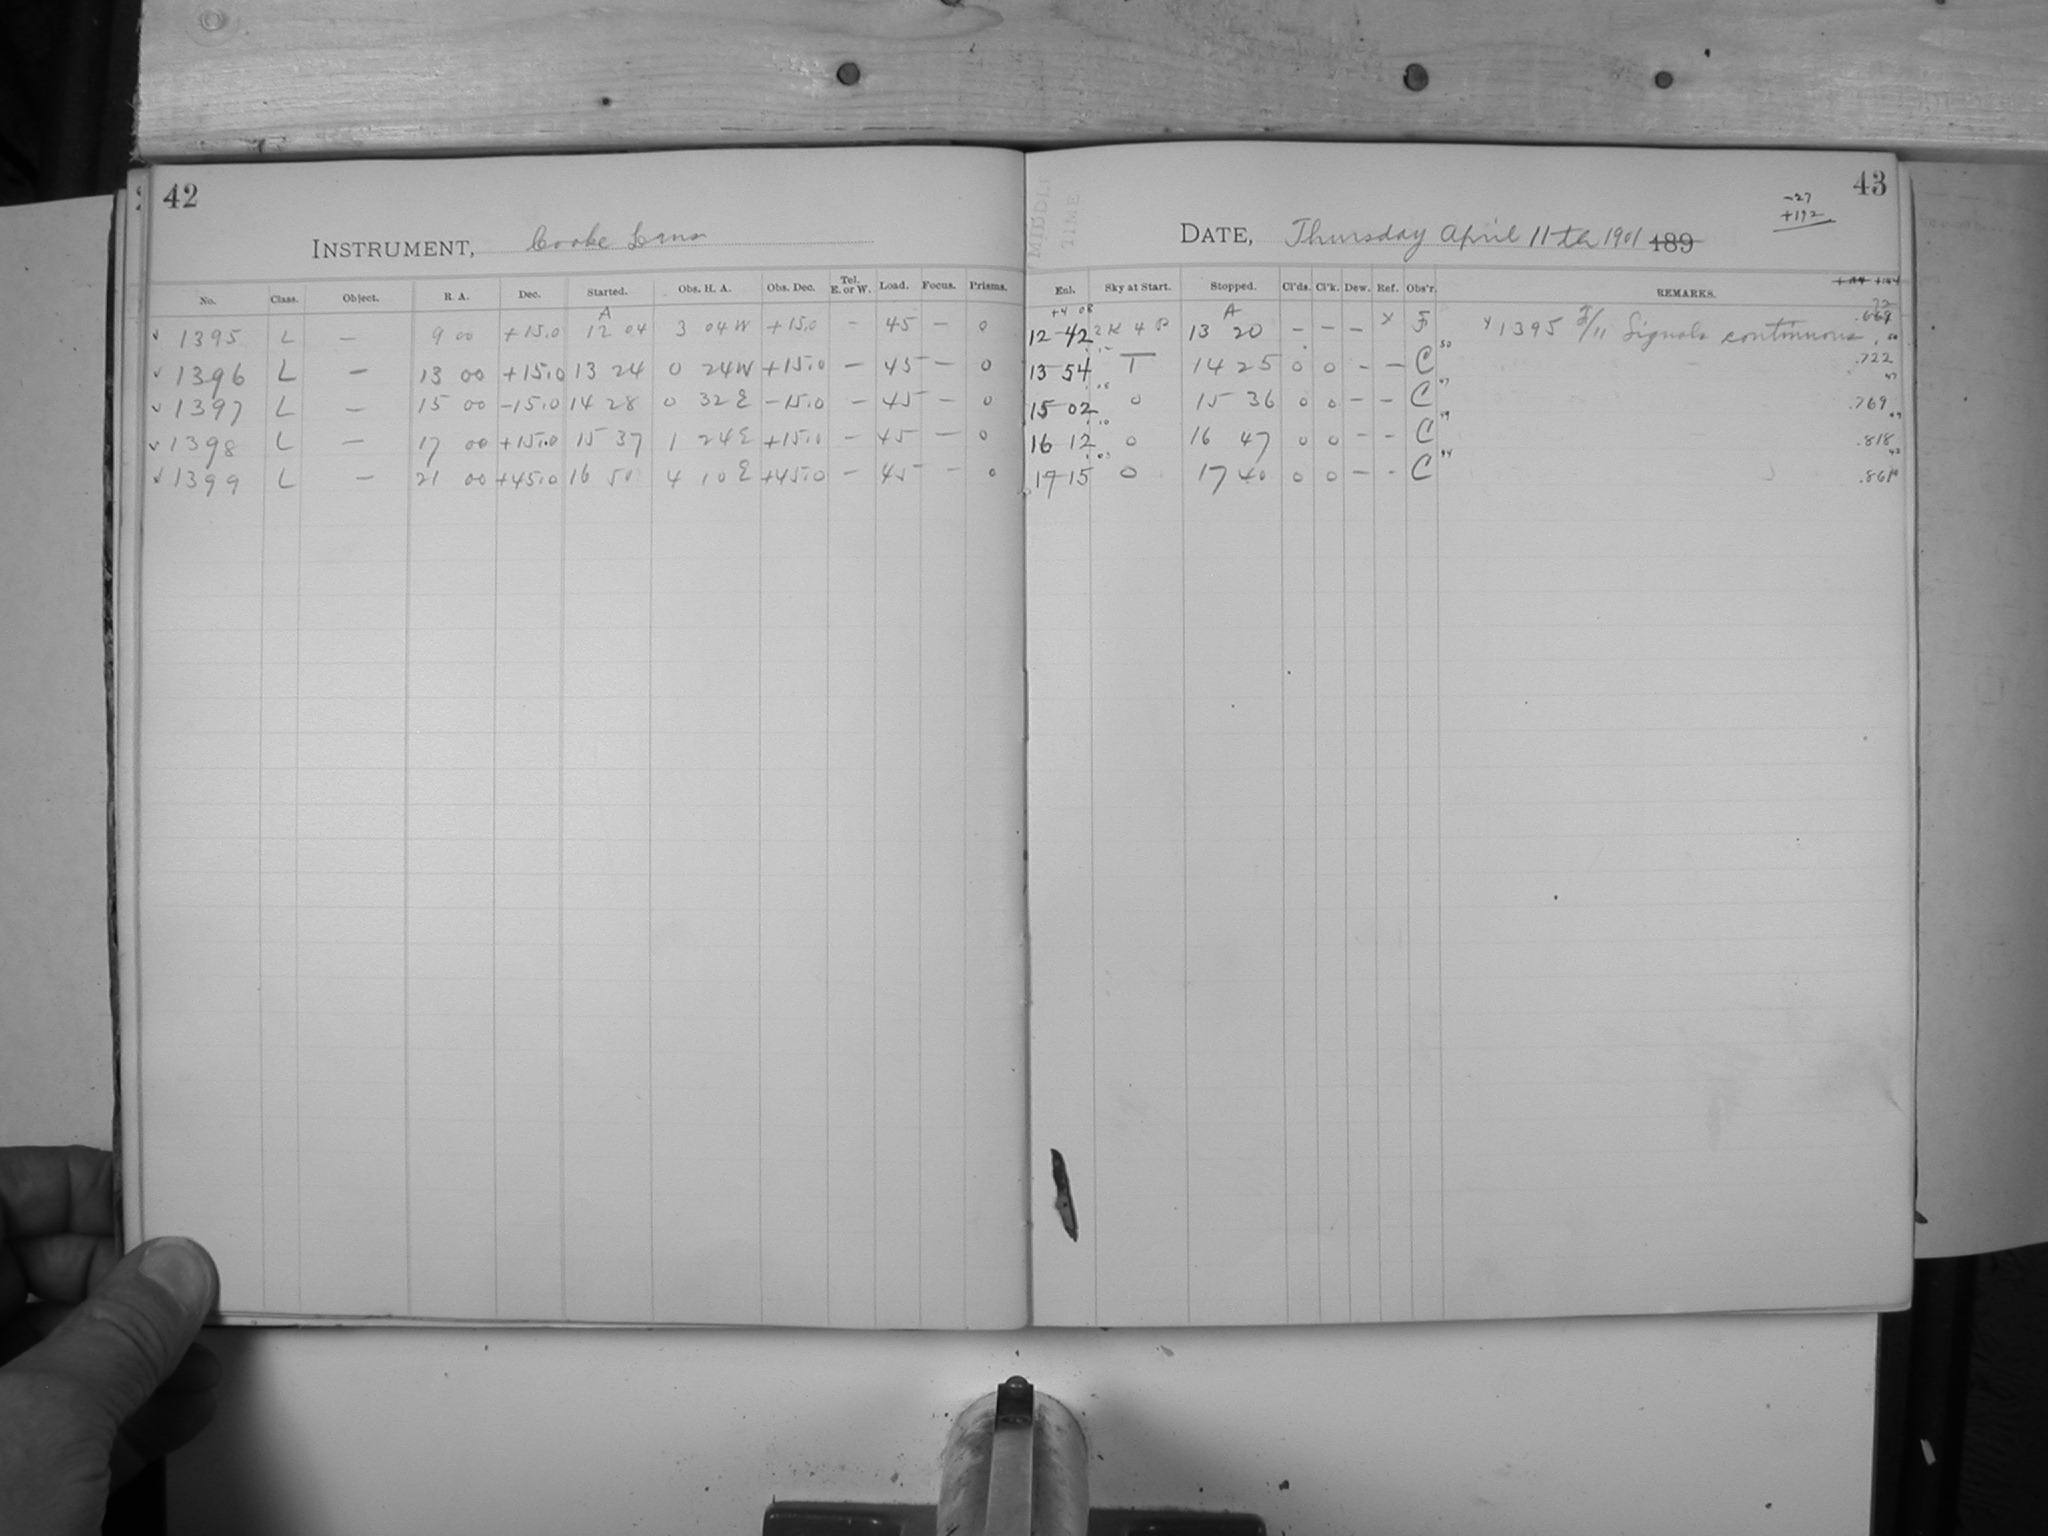 42
INSTRUMENT, Cooke Lens
No. Class. Object. R. A. Dec. Started. Obs. H. A. Obs. Dec. Tel. E. or W. Load. Focus. Prisms.
A
✓ 1395 L — 9 00 +15.0 12 04 3 04 W +15.0 — 45 — 0
✓ 1396 L — 13 00 +15.0 13 24 0 24 W +15.0 — 45 — 0
✓ 1397 L — 15 00 -15.0 14 28 0 32 E -15.0 — 45 — 0
✓ 1398 L — 17 00 +15.0 15 37 1 24 E +15.0 — 45 — 0
✓ 1399 L — 21 00 +45.0 16 50 4 10 E +45.0 — 45 — 0
43
-27
+192
MIDDL
TIME
DATE, Thursday April 11th 1901 189
Enl. Sky at Start. Stopped. Cl'ds. Cl'k. Dew. Ref. Obs'r. REMARKS.
+4 08 A
12 42 2 K 4 P 13 20 — — — x F x 1395 F/11 Signals continuous. .669
13 54 T 14 25 0 0 - — C .722
15 02 0 15 36 0 0 - - C .769
16 12 0 16 47 0 0 - - C .818
17 15 0 17 40 0 0 — - C .861